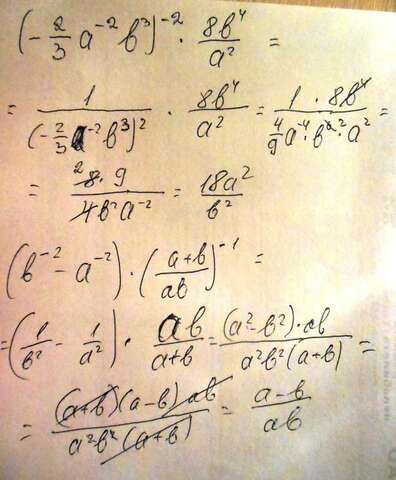 (-2/3 a⁻² b³)⁻² · 8b⁴/a² =
= 1/(-2/3 a⁻² b³)² · 8b⁴/a² = 1 · 8b⁴/(4/9 a⁻⁴ · b⁶ ² · a²) =
= ² 8 · 9/(4b²a⁻²) = 18a²/b²
(b⁻² - a⁻²) · ((a+b)/ab)⁻¹ =
= (1/b² - 1/a²) · ab/(a+b) = (a² - b²) · ab/(a²b²(a+b)) =
= (a+b)(a-b) ab/(a²b²(a+b)) = (a-b)/ab